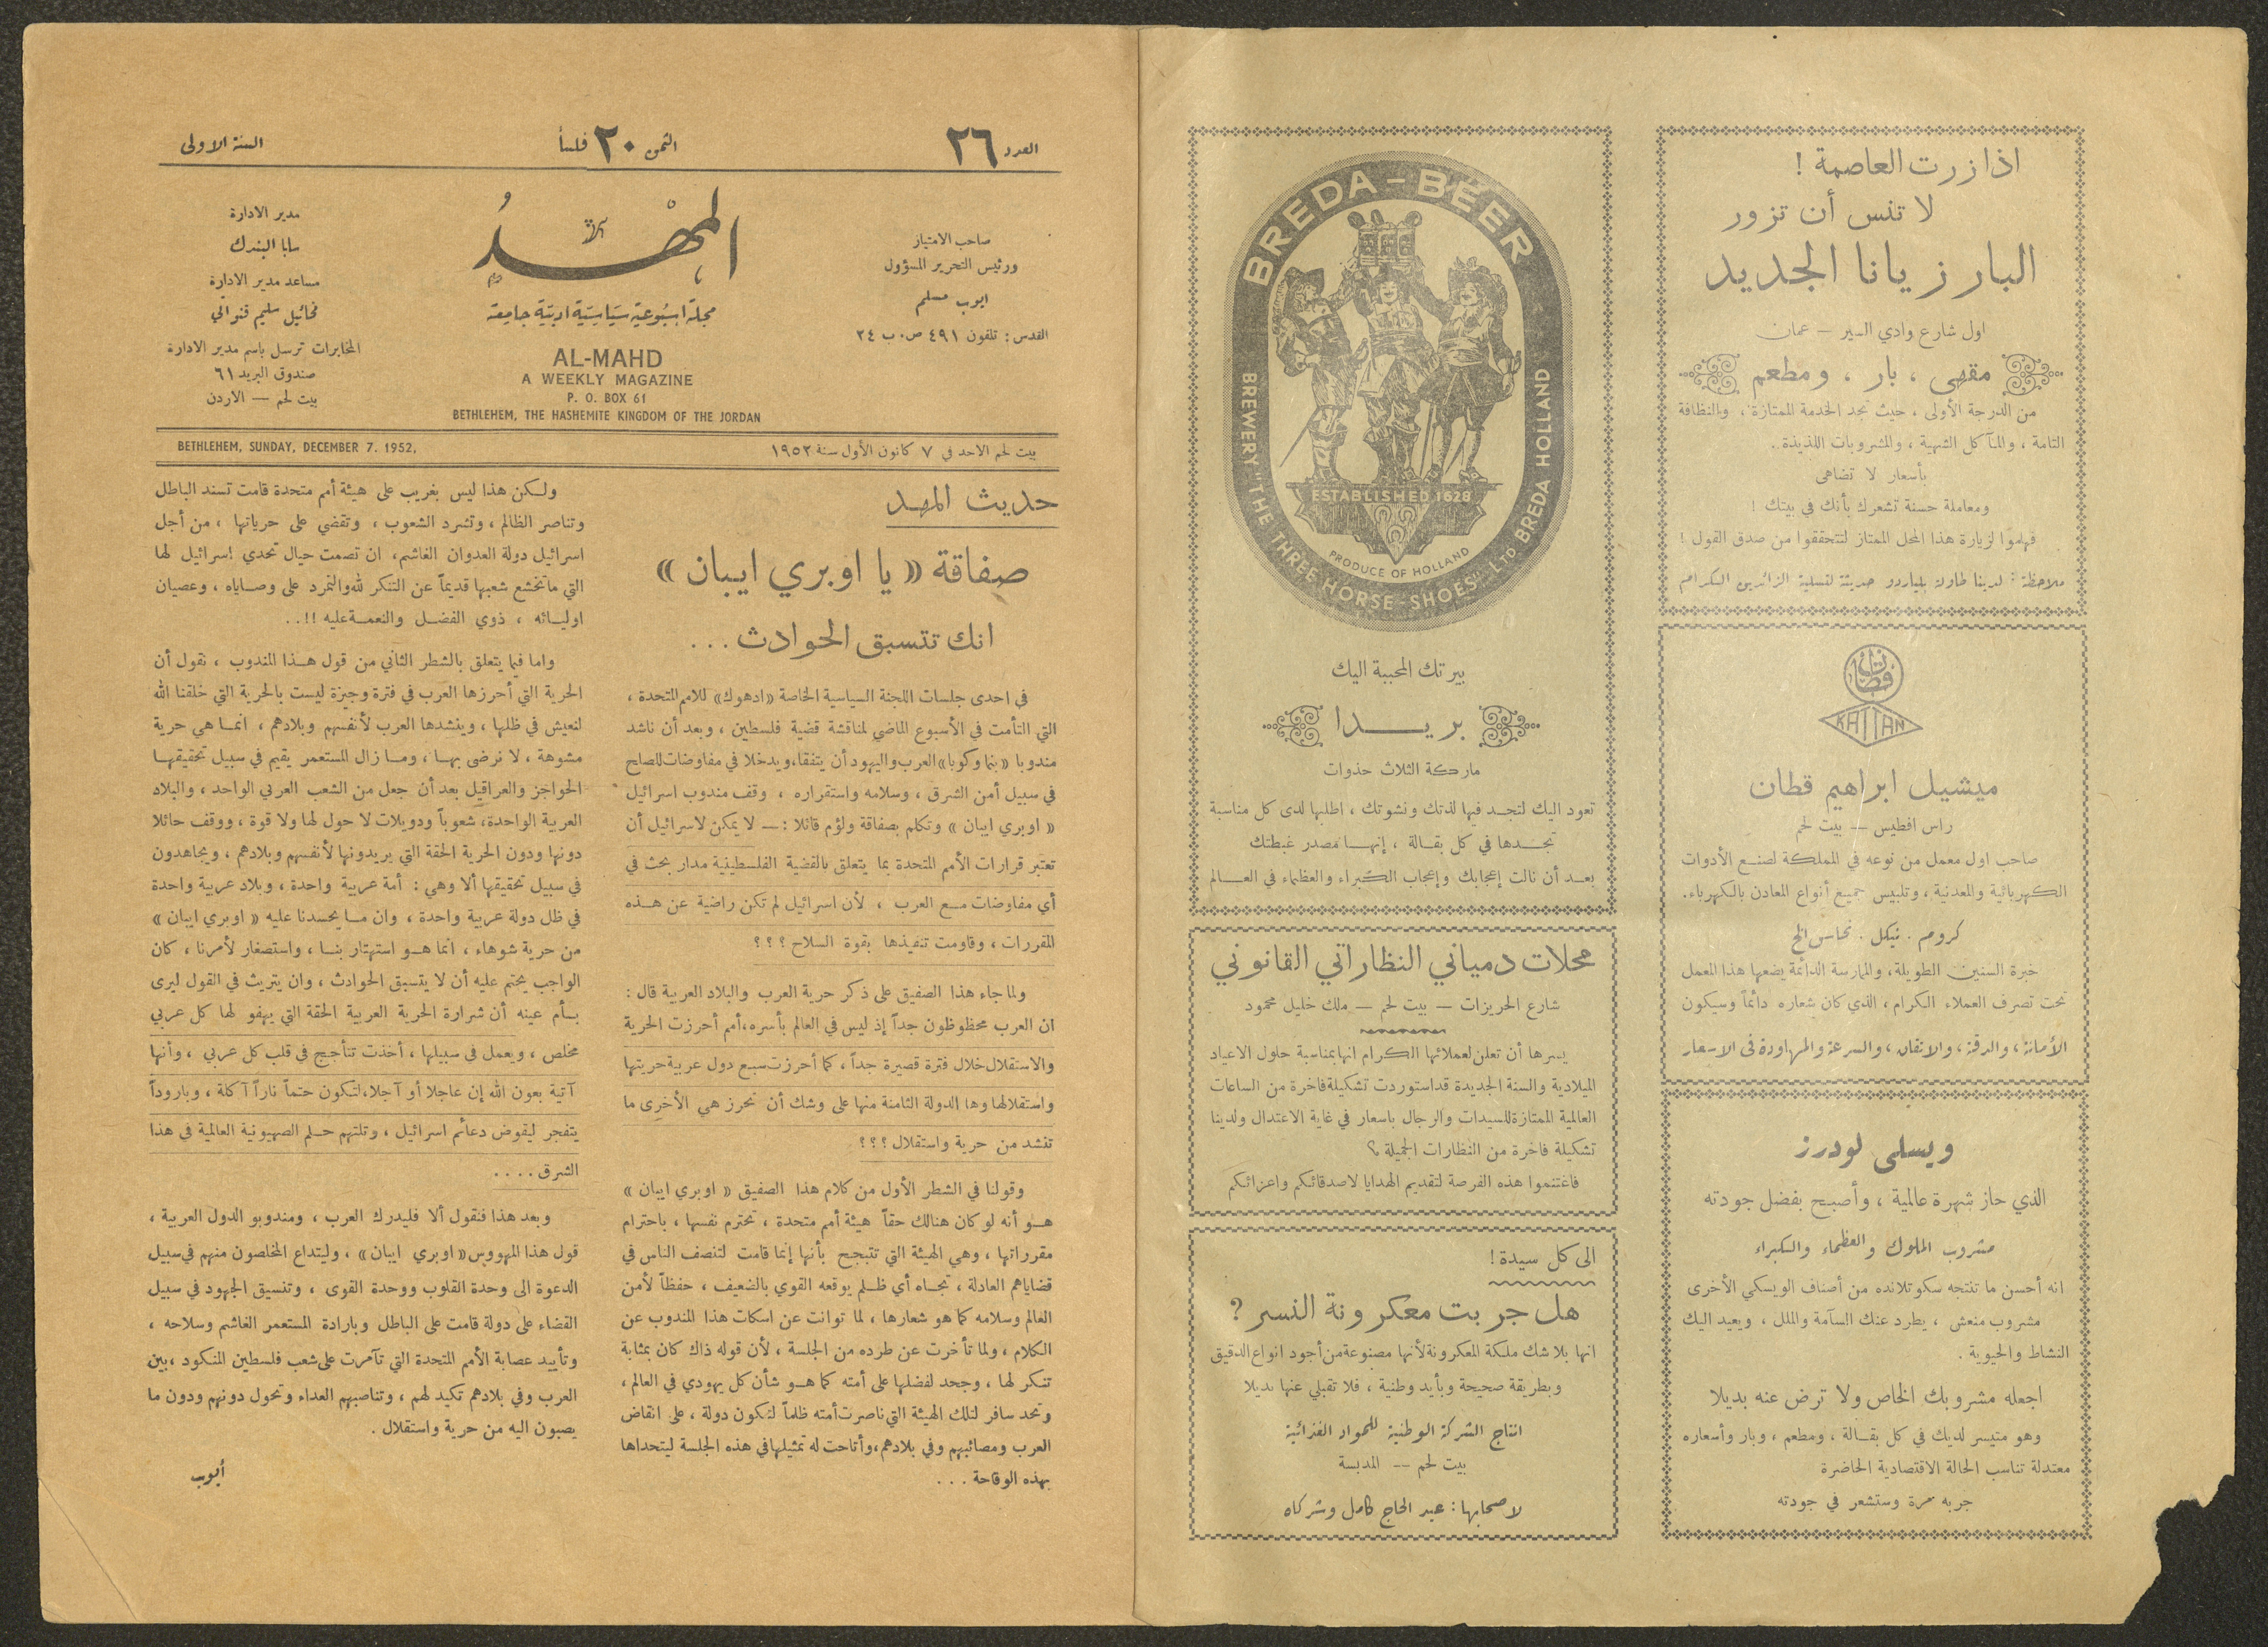 اذا زرت العاصمة !
لا تنس أن تزور
البار زيانا الجديد
اول شارع وادي السير — عمان
مقهى ، بار ، ومطعم
من الدرجة الأولى ، حيث تجد الخدمة الممتازة ، والنظافة
التامة ، والمآكل الشهية ، والمشروبات اللذيذة .
بأسعار لا تضاهى
ومعاملة حسنة تشعرك بأنك في بيتك !
فهلموا لزيارة هذا المحل الممتاز لتتحققوا من صدق القول !
ملاحظة : لدينا طاولة بلياردو حديثة لتسلية الزائرين الكرام
قطان
KATTAN
ميشيل ابراهيم قطان
راس افطيس — بيت لحم
صاحب اول معمل من نوعه في المملكة لصنع الأدوات
الكهربائية والمعدنية ، وتلبيس جميع أنواع المعادن بالكهرباء.
كروم . نيكل . نحاس الخ
خبرة السنين الطويلة، والممارسة الدائمة يضعها هذا المعمل
تحت تصرف العملاء الكرام ، الذي كان شعاره دائماً وسيكون
الأمانة ، والدقة ، والاتقان ، والسرعة والمهاودة في الاسعار
ويسلي لودرز
الذي حاز شهرة عالمية ، وأصبح بفضل جودته
مشروب الملوك والعظماء والكبراء
انه أحسن ما تنتجه سكوتلانده من أصناف الويسكي الأخرى
مشروب منعش ، يطرد عنك السآمة والملل ، ويعيد اليك
النشاط والحيوية .
اجعله مشروبك الخاص ولا ترض عنه بديلا
وهو متيسر لديك في كل بقالة ، ومطعم ، وبار وأسعاره
معتدلة تناسب الحالة الاقتصادية الحاضرة
جربه مرة وستشعر في جودته
BREDA-BEER
BREWERY "THE THREE-HORSE-SHOES" LTD BREDA HOLLAND
ESTABLISHED 1628
PRODUCE OF HOLLAND
بيرتك المحببة اليك
بريدا
ماركة الثلاث حذوات
تعود اليك لتجد فيها لذتك ونشوتك ، اطلبها لدى كل مناسبة
تجدها في كل بقالة ، إنها مصدر غبطتك
بعد أن نالت إعجابك وإعجاب الكبراء والعظماء في العالم
محلات دمياني النظاراتي القانوني
شارع الحريزات — بيت لحم — ملك خليل محمود
يسرها أن تعلن لعملائها الكرام انها بمناسبة حلول الاعياد
الميلادية والسنة الجديدة قد استوردت تشكيلة فاخرة من الساعات
العالمية الممتازة للسيدات والرجال باسعار في غاية الاعتدال ولدينا
تشكيلة فاخرة من النظارات الجميلة
فاغتنموا هذه الفرصة لتقديم الهدايا لاصدقائكم واعزائكم
الى كل سيدة !
هل جربت معكرونة النسر ?
انها بلا شك ملكة المعكرونة لأنها مصنوعة من أجود انواع الدقيق
وبطريقة صحيحة وبأيد وطنية ، فلا تقبلي عنها بديلا
انتاج الشركة الوطنية للمواد الغذائية
بيت لحم — المدبسة
لاصحابها : عبد الحاج كامل وشركاه
العدد ٢٦
الثمن ٢٠ فلساً
السنة الاولى
صاحب الامتياز
ورئيس التحرير المسؤول
ايوب مسلم
القدس : تلفون ٤٩١ ص٠ب ٢٤
المهد
مجلة اسبوعية سياسية ادبية جامعة
AL-MAHD
A WEEKLY MAGAZINE
P. O. BOX 61
BETHLEHEM, THE HASHEMITE KINGDOM OF THE JORDAN
مدير الادارة
سابا البندك
مساعد مدير الادارة
مخائيل سليم قنواتي
المخابرات ترسل باسم مدير الادارة
صندوق البريد ٦١
بيت لحم — الاردن
بيت لحم الاحد في ٧ كانون الأول سنة ١٩٥٢
BETHLEHEM, SUNDAY, DECEMBER 7. 1952,
حديث المهد
صفاقة « يا اوبري ايبان »
انك تتسبق الحوادث . . .
في احدى جلسات اللجنة السياسية الخاصة «ادهوك» للامم المتحدة ،
التي التأمت في الأسبوع الماضي لمناقشة قضية فلسطين ، وبعد أن ناشد
مندوبا «بنما وكوبا» العرب واليهود أن يتفقا، ويدخلا في مفاوضات للصلح
في سبيل أمن الشرق ، وسلامه واستقراره ، وقف مندوب اسرائيل
« اوبري ايبان » وتكلم بصفاقة ولؤم قائلا : — لا يمكن لاسرائيل أن
تعتبر قرارات الأمم المتحدة بما يتعلق بالقضية الفلسطينية مدار بحث في
أي مفاوضات مع العرب ، لأن اسرائيل لم تكن راضية عن هذه
المقررات ، وقاومت تنفيذها بقوة السلاح ؟ ؟ ؟
ولما جاء هذا الصفيق على ذكر حرية العرب والبلاد العربية قال :
ان العرب محظوظون جداً إذ ليس في العالم بأسره، أمم أحرزت الحرية
والاستقلال خلال فترة قصيرة جداً ، كما أحرزت سبع دول عربية حريتها
واستقلالها وها الدولة الثامنة منها على وشك أن تحرز هي الأخرى ما
تنشد من حرية واستقلال ؟؟؟
وقولنا في الشطر الأول من كلام هذا الصفيق « اوبري ايبان »
هو أنه لو كان هنالك حقاً هيئة أمم متحدة ، تحترم نفسها ، باحترام
مقرراتها ، وهي الهيئة التي تتبجح بأنها إنما قامت لتنصف الناس في
قضاياهم العادلة ، تجاه أي ظلم يوقعه القوي بالضعيف ، حفظاً لأمن
العالم وسلامه كما هو شعارها ، لما توانت عن اسكات هذا المندوب عن
الكلام ، ولما تأخرت عن طرده من الجلسة ، لأن قوله ذاك كان بمثابة
تنكر لها ، وجحد لفضلها على أمته كما هو شأن كل يهودي في العالم ،
وتحد سافر لتلك الهيئة التي ناصرت أمته ظلماً لتكون دولة ، على انقاض
العرب ومصائبهم وفي بلادهم، وأتاحت له تمثيلها في هذه الجلسة ليتحداها
بهذه الوقاحة . . .
ولكن هذا ليس بغريب على هيئة أمم متحدة قامت تسند الباطل
وتناصر الظالم ، وتشرد الشعوب ، وتقضي على حرياتها ، من أجل
اسرائيل دولة العدوان الغاشم، ان تصمت حيال تحدي اسرائيل لها
التي ما تخشع شعبها قديماً عن التنكر لله والتمرد على وصاياه ، وعصيان
اوليائه ، ذوي الفضل والنعمة عليه !! . .
واما فيما يتعلق بالشطر الثاني من قول هذا المندوب ، نقول أن
الحرية التي أحرزها العرب في فترة وجيزة ليست بالحرية التي خلقنا الله
لنعيش في ظلها ، وينشدها العرب لأنفسهم وبلادهم ، انما هي حرية
مشوهة ، لا نرضى بها ، وما زال المستعمر يقيم في سبيل تحقيقها
الحواجز والعراقيل بعد أن جعل من الشعب العربي الواحد ، والبلاد
العربية الواحدة، شعوباً ودويلات لا حول لها ولا قوة ، ووقف حائلا
دونها ودون الحرية الحقة التي يريدونها لأنفسهم وبلادهم ، ويجاهدون
في سبيل تحقيقها ألا وهي : أمة عربية واحدة ، وبلاد عربية واحدة
في ظل دولة عربية واحدة ، وان ما يحسدنا عليه « اوبري ايبان »
من حرية شوهاء ، انما هو استهتار بنا ، واستصغار لأمرنا ، كان
الواجب يحتم عليه أن لا يتسبق الحوادث ، وان يتريث في القول ليرى
بأم عينه أن شرارة الحرية العربية الحقة التي يهفو لها كل عربي
مخلص ، ويعمل في سبيلها ، أخذت تتأجج في قلب كل عربي ، وأنها
آتية بعون الله إن عاجلا أو آجلا، لتكون حتماً ناراً آكلة ، وباروداً
يتفجر ليقوض دعائم اسرائيل ، وتلتهم حلم الصهيونية العالمية في هذا
الشرق . . . .
وبعد هذا فنقول ألا فليدرك العرب ، ومندوبو الدول العربية ،
قول هذا المهووس «اوبري ايبان» ، وليتداع المخلصون منهم في سبيل
الدعوة الى وحدة القلوب ووحدة القوى ، وتنسيق الجهود في سبيل
القضاء على دولة قامت على الباطل وبارادة المستعمر الغاشم وسلاحه ،
وتأييد عصابة الأمم المتحدة التي تآمرت على شعب فلسطين المنكود ، بين
العرب وفي بلادهم تكيد لهم ، وتناصبهم العداء وتحول دونهم ودون ما
يصبون اليه من حرية واستقلال .
أيوب